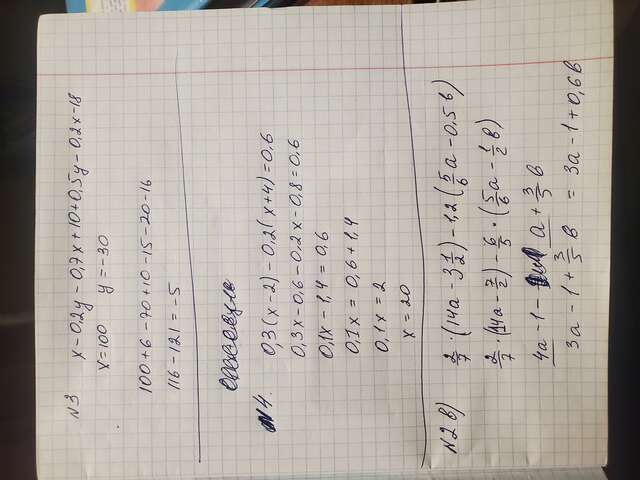 N3 x-0,2y-0,7x+10+0,5y-0,2x-18
x=100 y=-30
100+6-70+10-15-20-16
116-121=-5
N4. 0,3(x-2)-0,2(x+4)=0,6
0,3x-0,6-0,2x-0,8=0,6
0,1x-1,4=0,6
0,1x=0,6+1,4
0,1x=2
x=20
N2 в) 2/7·(14a-3 1/2)-1,2(5/6a-0,5в)
2/7·(14a-7/2)-6/5·(5/6a-1/2в)
4a-1-a+3/5в
3a-1+3/5в=3a-1+0,6в